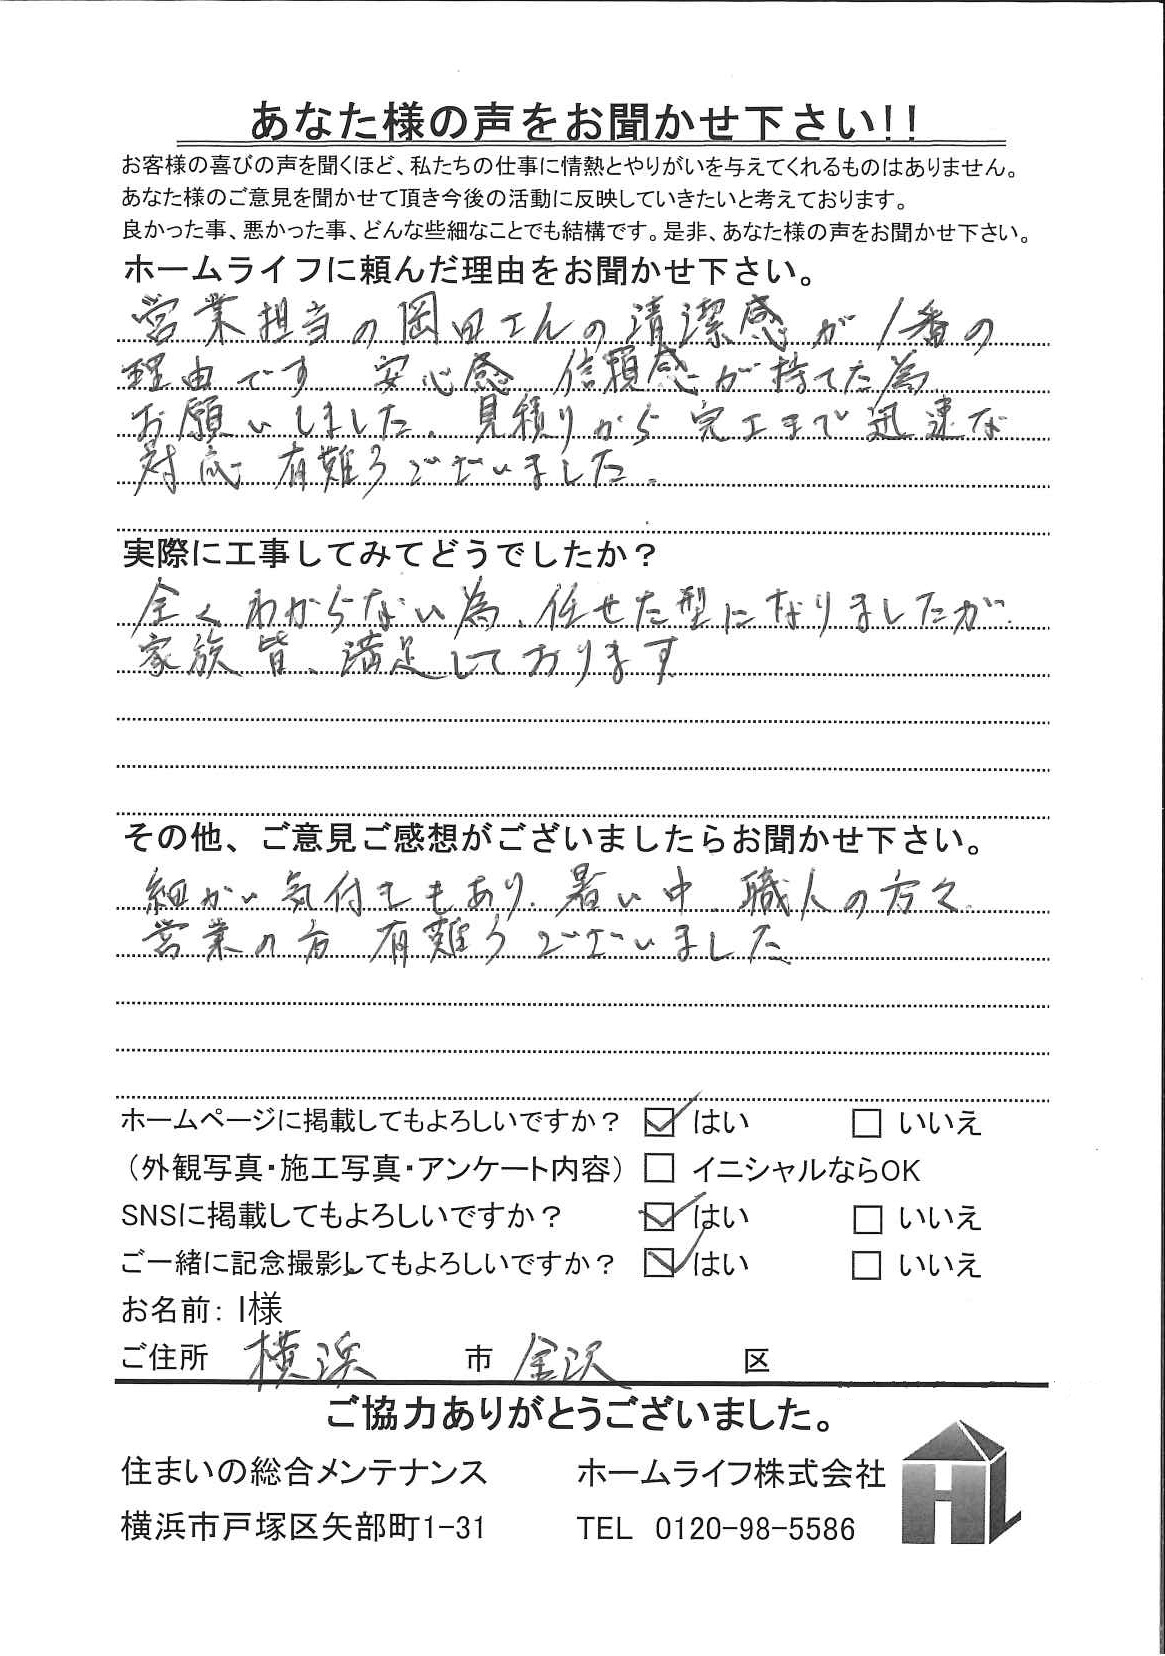 あなた様の声をお聞かせ下さい!!
お客様の喜びの声を聞くほど、私たちの仕事に情熱とやりがいを与えてくれるものはありません。
あなた様のご意見を聞かせて頂き今後の活動に反映していきたいと考えております。
良かった事、悪かった事、どんな些細なことでも結構です。是非、あなた様の声をお聞かせ下さい。
ホームライフに頼んだ理由をお聞かせ下さい。
営業担当の岡田さんの清潔感が1番の
理由です 安心感、信頼感が持てた為
お願いしました。見積りから完工まで迅速な
対応 有難うございました。
実際に工事してみてどうでしたか？
全くわからない為、任せた型になりましたが、
家族皆、満足しております
その他、ご意見ご感想がございましたらお聞かせ下さい。
細かい気付きもあり、暑い中、職人の方々、
営業の方 有難うございました
ホームページに掲載してもよろしいですか？ ☑ はい □ いいえ
（外観写真・施工写真・アンケート内容） □ イニシャルならOK
SNSに掲載してもよろしいですか？ ☑ はい □ いいえ
ご一緒に記念撮影してもよろしいですか？ ☑ はい □ いいえ
お名前: I様
ご住所 横浜 市 金沢 区
ご協力ありがとうございました。
住まいの総合メンテナンス ホームライフ株式会社
横浜市戸塚区矢部町1-31 TEL 0120-98-5586
HL